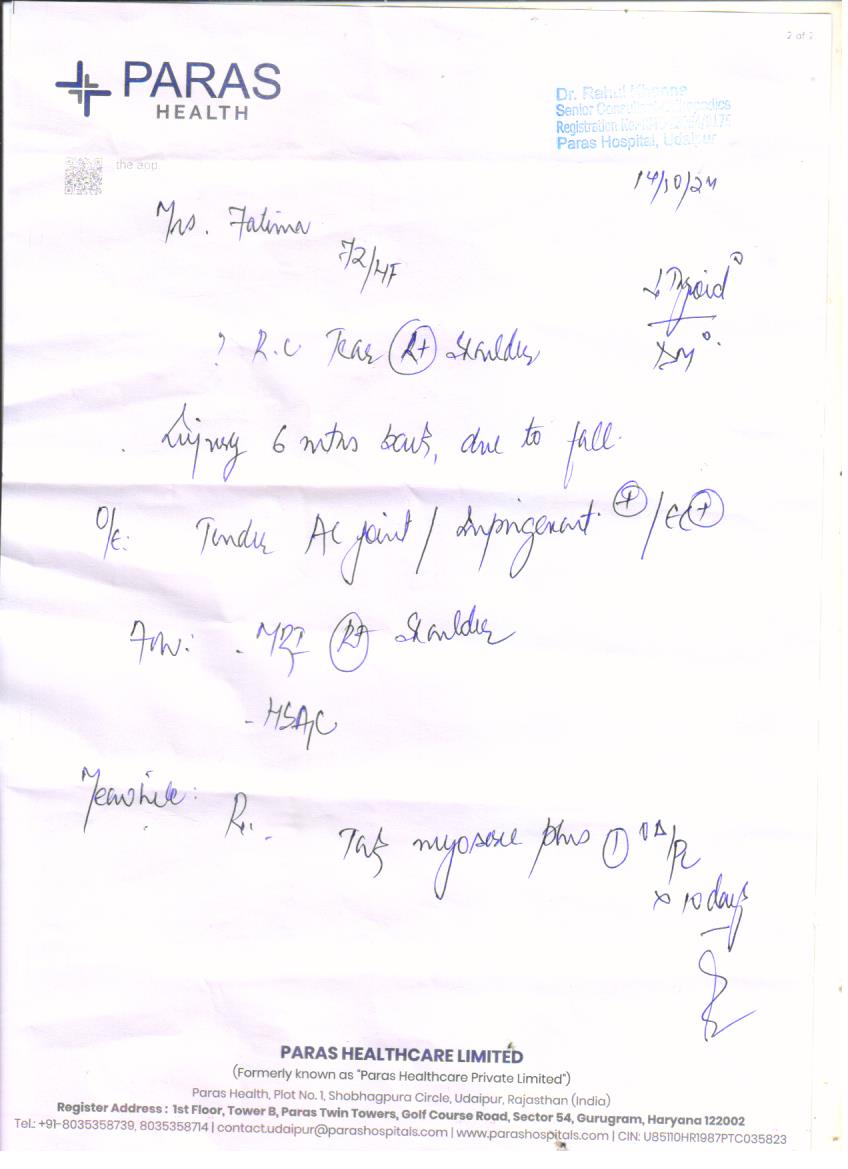 2 of 2
PARAS
HEALTH
Dr. Rahul Khanna
Senior Consultant Orthopaedics
Registration No.
Paras Hospital, Udaipur
the app
14/10/24
Mrs. Fatima
72/F
Thyroid
DM
? R.C Tear Rt Shoulder
Injury 6 mths back, due to fall.
O/E: Tender AC joint / Impingement + / EC +
Adv: - MRI Rt Shoulder
- HbA1C
Meawhile: Rx.
Tab myosone plus 1
x 10 days
PARAS HEALTHCARE LIMITED
(Formerly known as "Paras Healthcare Private Limited")
Paras Health, Plot No. 1, Shobhagpura Circle, Udaipur, Rajasthan (India)
Register Address : 1st Floor, Tower B, Paras Twin Towers, Golf Course Road, Sector 54, Gurugram, Haryana 122002
Tel.: +91-8035358739, 8035358714 | contact.udaipur@parashospitals.com | www.parashospitals.com | CIN: U85110HR1987PTC035823